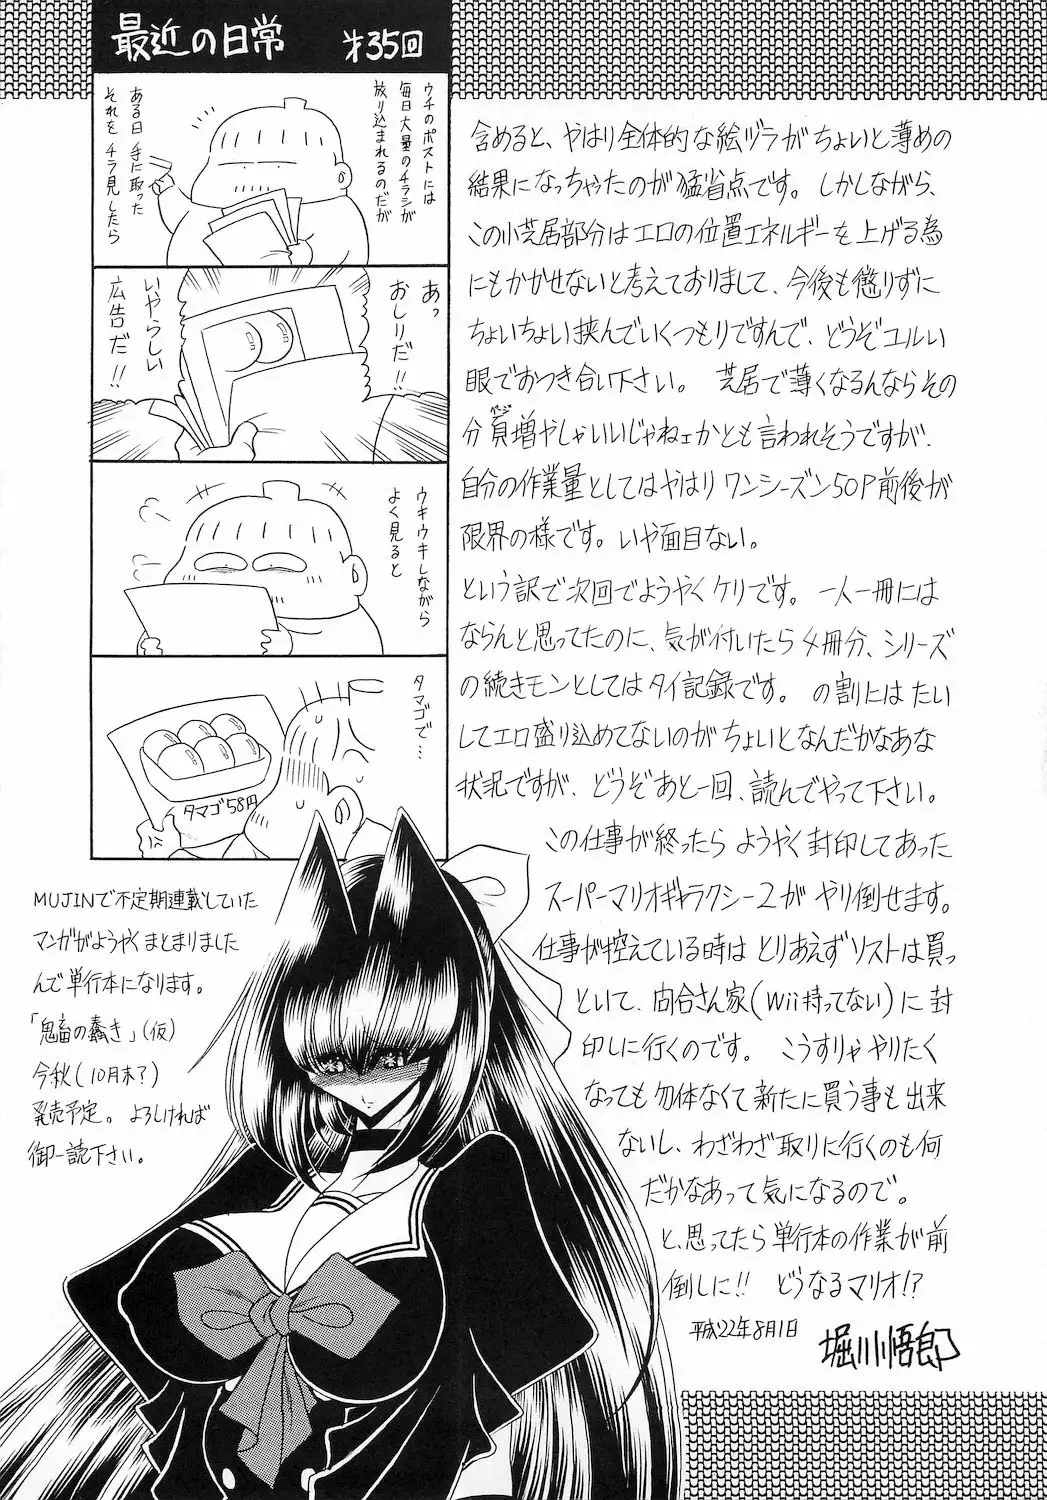 最近の日常 第35回
ウチのポストには
毎日大量のチラシが
放り込まれるのだが
ある日手に取った
それをチラ見したら
あっ
おしりだ!!
いやらしい
広告だ!!
ウキウキしながら
よく見ると
タマゴで…
タマゴ58円
MUJINで不定期連載していた
マンガがようやくまとまりました
んで単行本になります。
「鬼畜の蠢き」(仮)
今秋(10月末?)
発売予定。よろしければ
御一読下さい。
含めると、やはり全体的な絵ヅラがちょいと薄めの
結果になっちゃったのが猛省点です。しかしながら、
この小芝居部分はエロの位置エネルギーを上げる為
にもかかせないと考えておりまして、今後も懲りずに
ちょいちょい挟んでいくつもりですんで、どうぞユルい
眼でおつき合い下さい。芝居で薄くなるんならその
分頁増やしゃいいじゃねェかとも言われそうですが、
自分の作業量としてはやはりワンシーズン50P前後が
限界の様です。いや面目ない。
という訳で次回でようやくケリです。一人一冊には
ならんと思ってたのに、気が付いたら4冊分、シリーズ
の続きモンとしてはタイ記録です。の割にはたい
してエロ盛り込めてないのがちょいとなんだかなあな
状況ですが、どうぞあと一回、読んでやって下さい。
この仕事が終ったらようやく封印してあった
スーパーマリオギャラクシー2がやり倒せます。
仕事が控えている時はとりあえずソストは買っ
といて、向合さん家(Wii持ってない)に封
印しに行くのです。こうすりゃやりたく
なっても勿体なくて新たに買う事も出来
ないし、わざわざ取りに行くのも何
だかなあって気になるので。
と、思ってたら単行本の作業が前
倒しに!!どうなるマリオ!?
平成22年8月1日
堀川悟郎